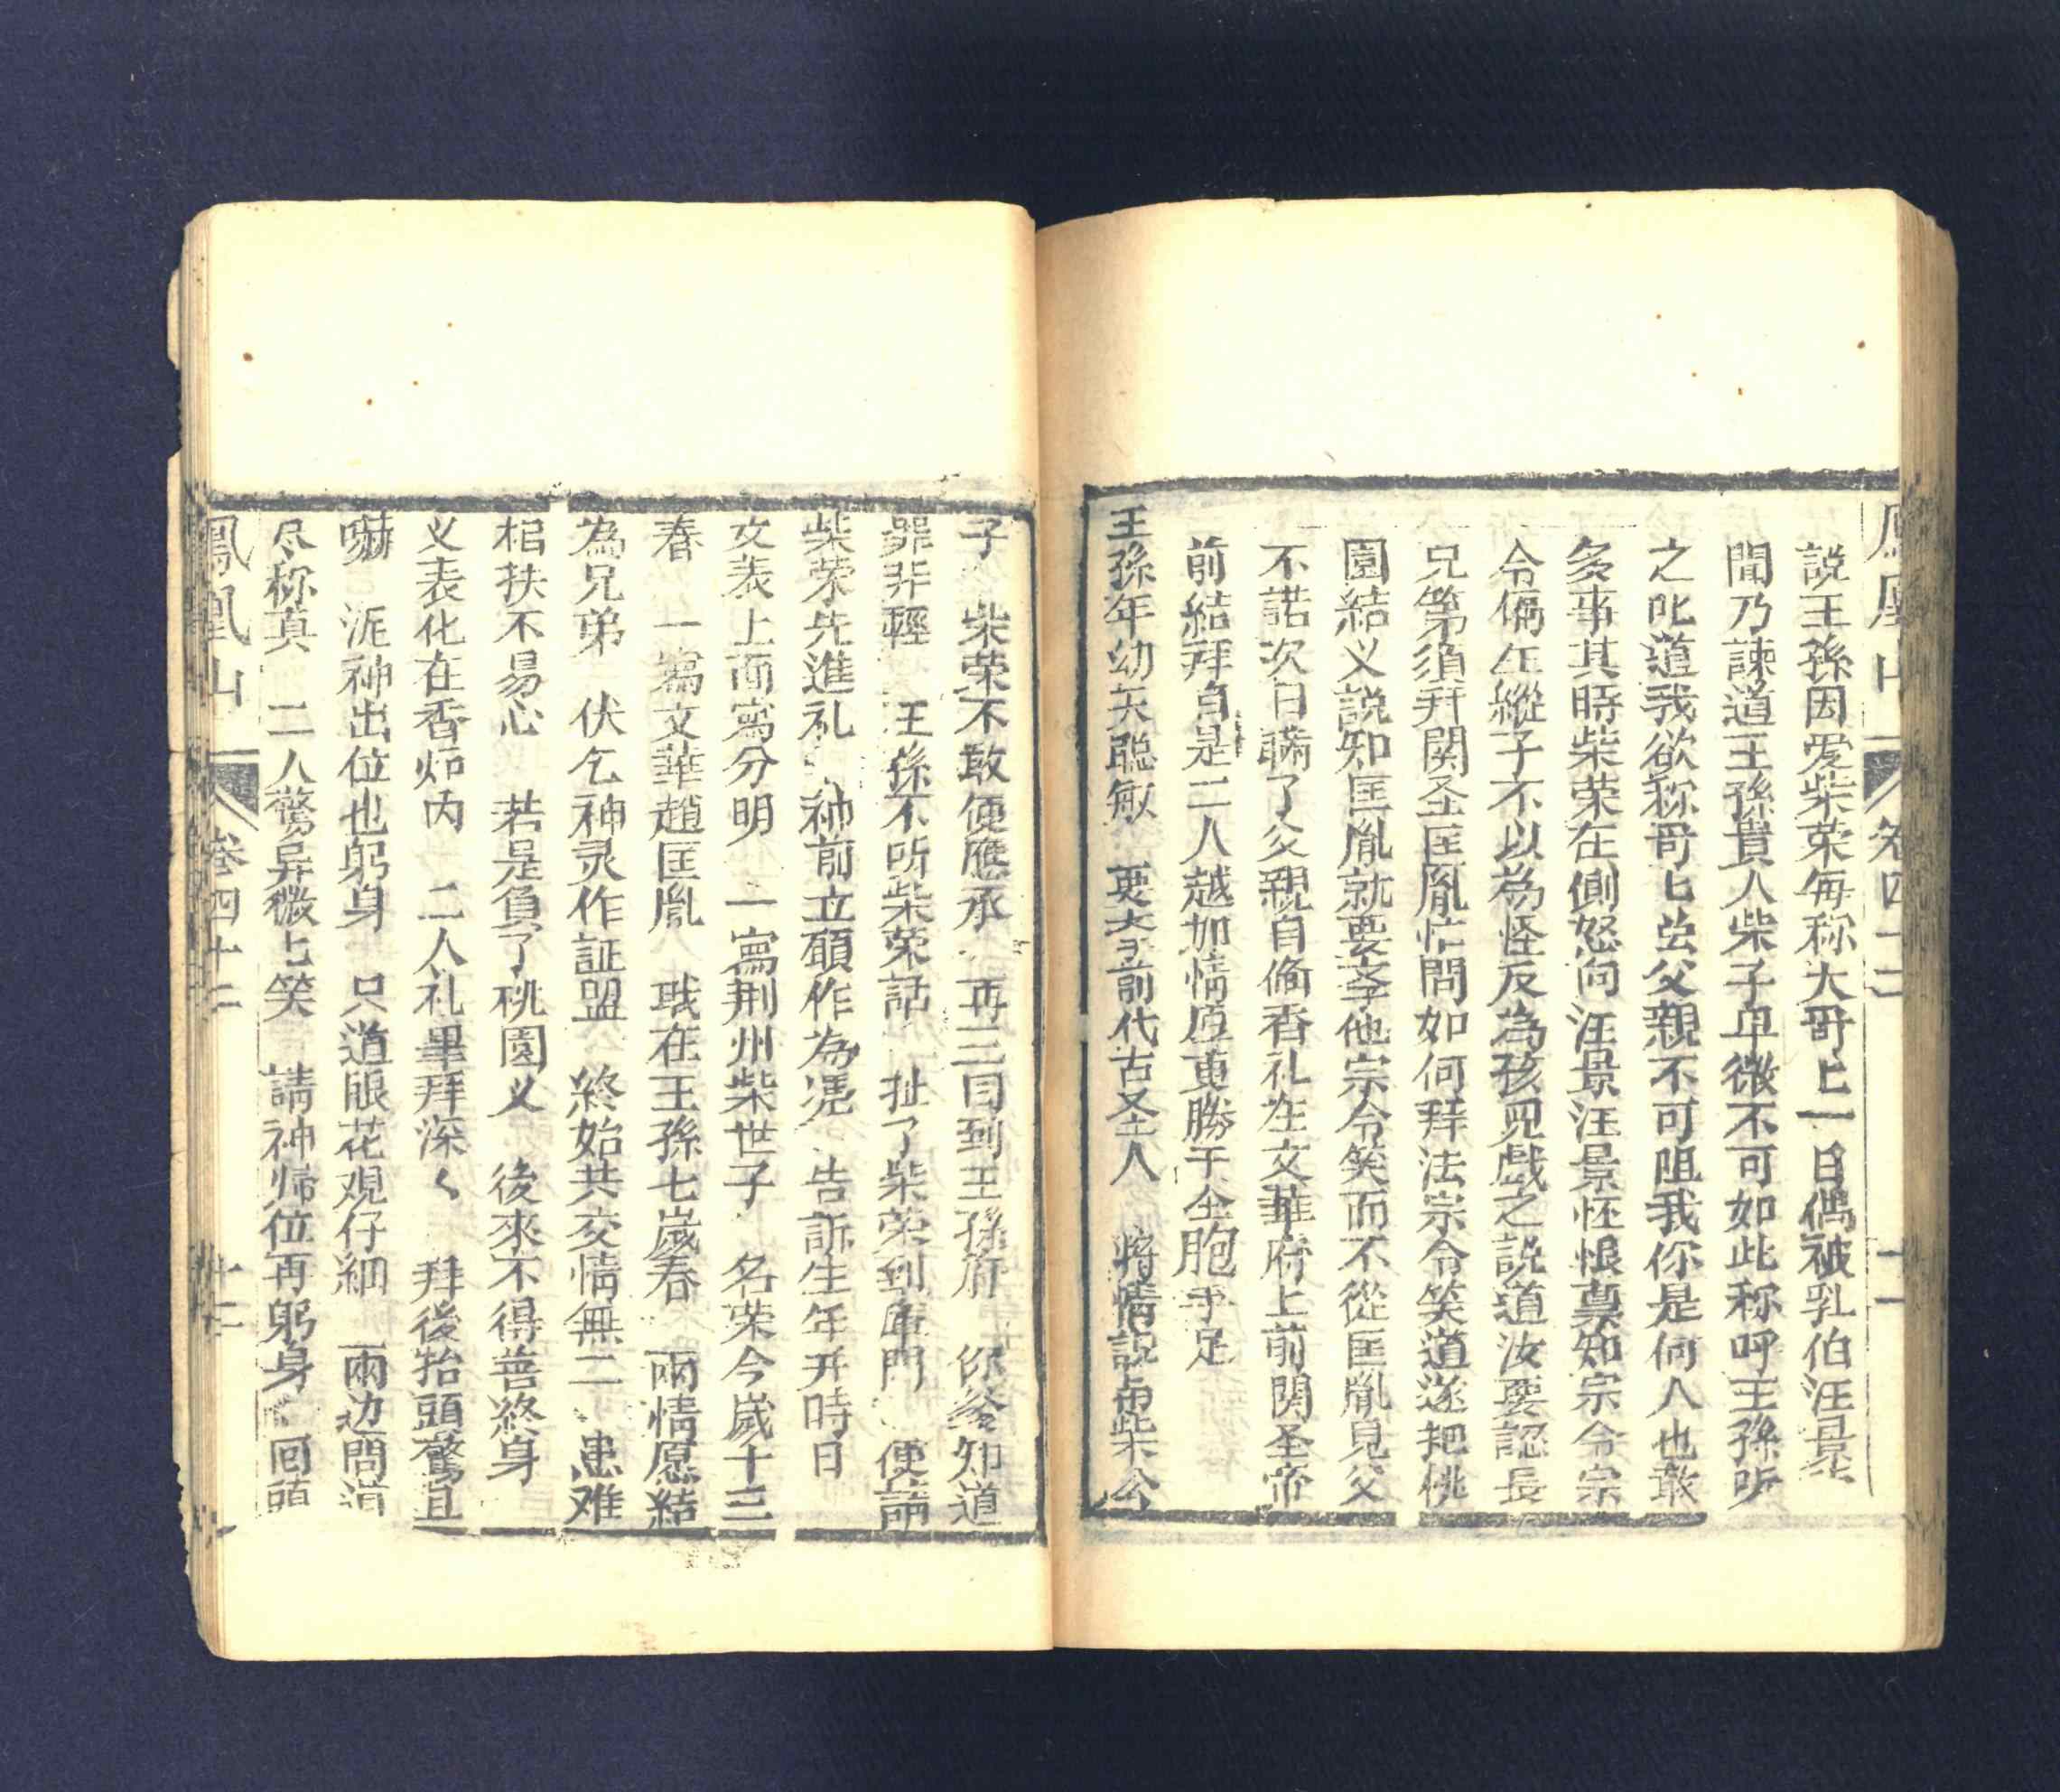 鳳凰山 卷四十二 十一
説王孫因爱柴荣每称大哥〻一日偶被乳伯汪景
聞乃諫道王孫貴人柴子卑微不可如此称呼王孫听
之叱道我欲称哥〻虽父親不可阻我你是何人也敢
多事其時柴荣在側怒向汪景汪景怀恨禀知宗令宗
令偏生縱子不以為怪反為孩児戲之説道汝要認長
兄第須拜関圣匡胤忙問如何拜法宗令笑道遂把桃
園結义説知匡胤就要李他宗令笑而不從匡胤見父
不諾次日瞞了父親自俻香礼在文華府上前関圣帝
前結拜自是二人越加情厚更勝于仝胞手足
王孫年幼矢聪敏　要李前代古圣人　將情説与柴公
子　柴荣不敢便應承　再三回到王孫府　你爹知道
罪非輕　王孫不听柴荣話　扯了柴荣到庙門　便請
柴荣先進礼　神前立願作為憑　告訴生年并時日
文表上面寫分明　一寫荆州柴世子　名荣今歲十三
春　一寫文華趙匡胤　職在王孫七歲春　兩情愿結
為兄弟　伏乞神灵作証盟　終始共交情無二　患难
相扶不易心　若是負了桃園义　後來不得善終身
义表化在香炉内　二人礼畢拜深〻　拜後抬頭驚且
嚇　泥神出位也躬身　只道眼花观仔細　兩边問道
尽称真　二人驚异微〻笑　請神帰位再躬身　回頭
鳳凰山 卷四十二 十二